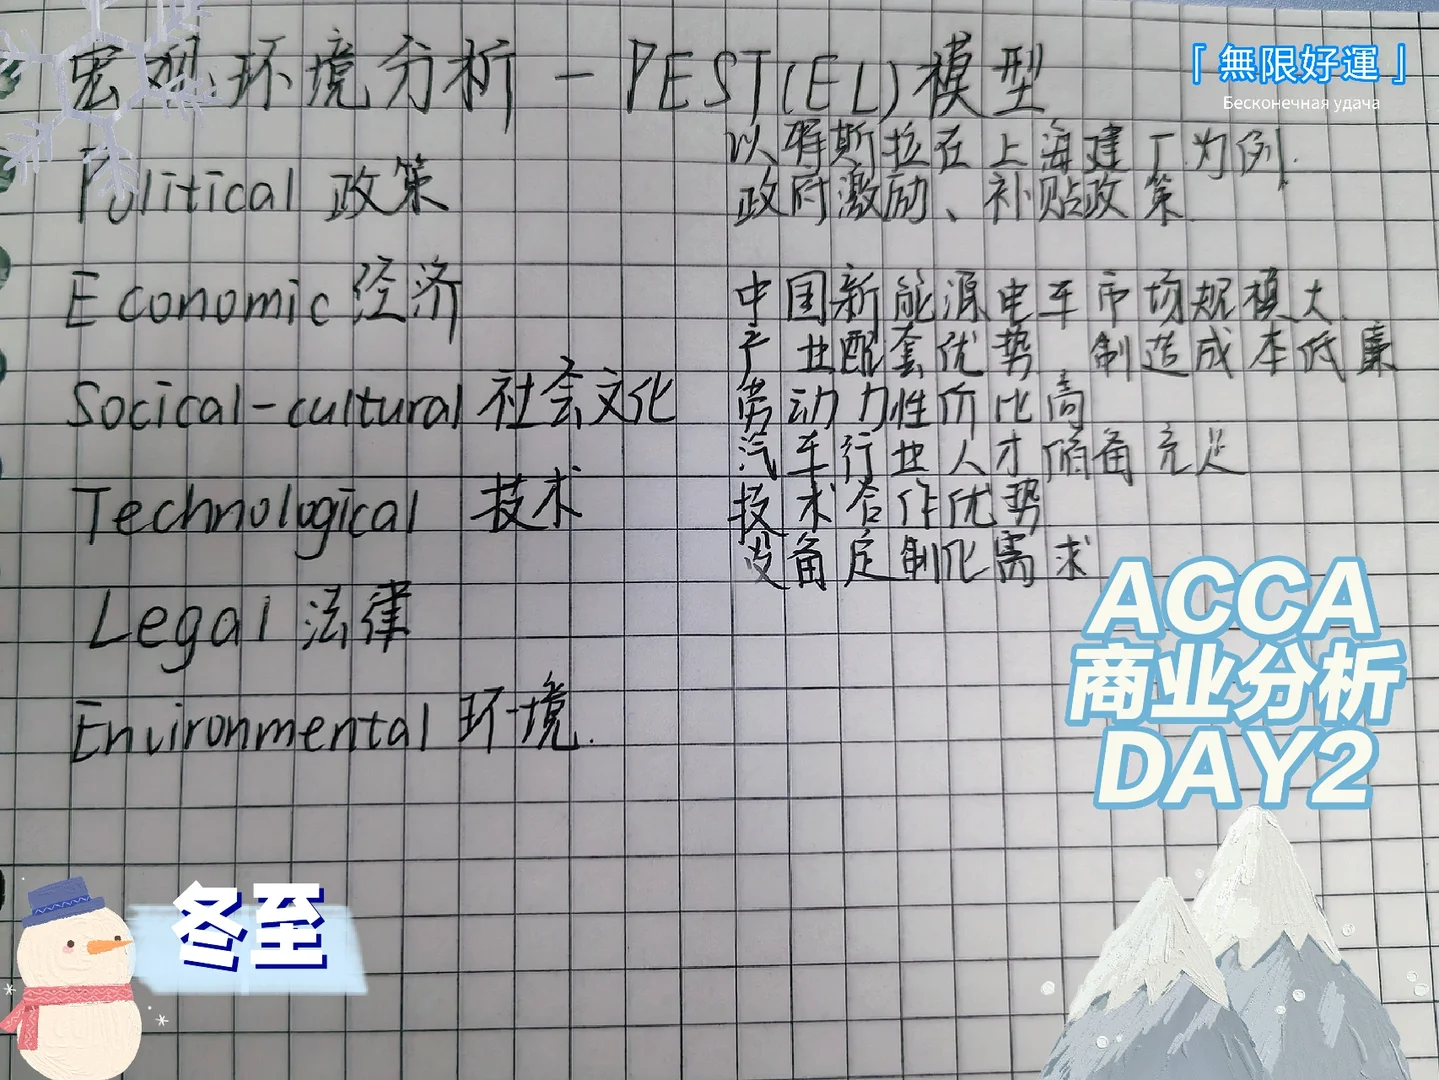 宏观环境分析 - PEST(EL)模型
「 無限好運 」
Бесконечная удача
以特斯拉在上海建厂为例.
Political 政策
政府激励、补贴政策.
Economic 经济
中国新能源电车市场规模大.
产业配套优势 制造成本低廉
Socical-cultural 社会文化
劳动力性价比高
汽车行业人才储备充足
Technological 技术
技术合作优势
设备定制化需求
Legal 法律
Environmental 环境.
ACCA
商业分析
DAY2
冬至